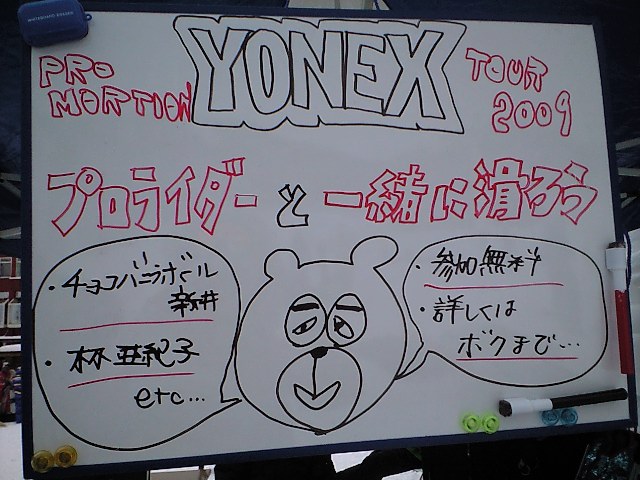 YONEX
PRO-
MORTION
TOUR
2009
プロライダーと一緒に滑ろう
・チョコバニラボール
新井
・林 亜紀子
etc...
・参加無料
・詳しくは
ボクまで...